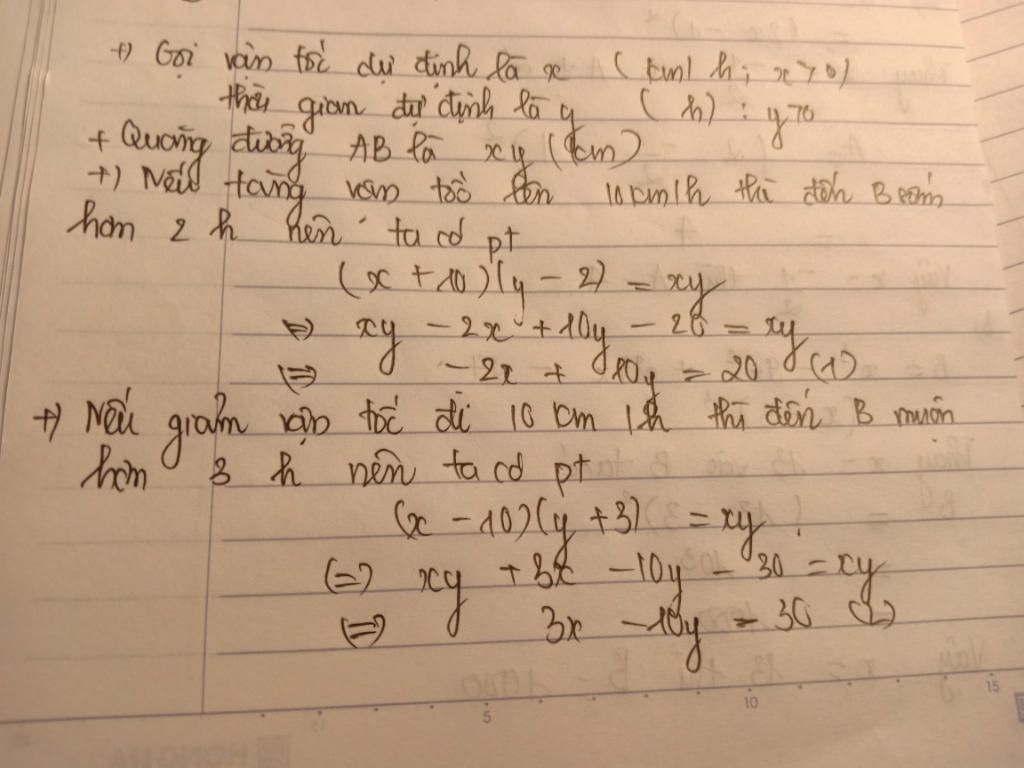 +) Gọi vận tốc dự định là x ( km/h; x > 0)
thời gian dự định là y ( h) : y > 0
+ Quãng đường AB là xy (km)
+) Nếu tăng vận tốc lên 10 km/h thì đến B sớm
hơn 2 h nên ta có pt
(x + 10)(y - 2) = xy
⇔ xy - 2x + 10y - 20 = xy
⇔ - 2x + 10y = 20 (1)
+) Nếu giảm vận tốc đi 10 km/h thì đến B muộn
hơn 3 h nên ta có pt
(x - 10)(y + 3) = xy
⇔ xy + 3x - 10y - 30 = xy
⇔ 3x - 10y = 30 (2)
5 10 15